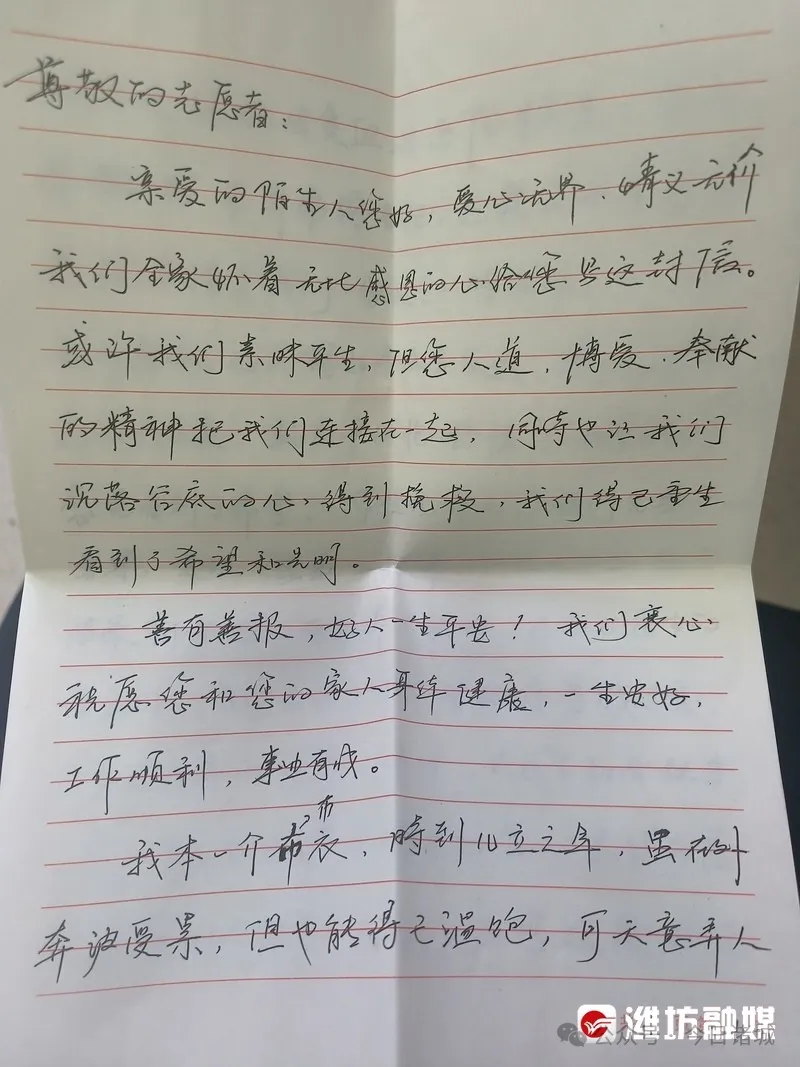 尊敬的志愿者：
亲爱的陌生人您好，爱心无界，情义无价
我们全家怀着无比感恩的心给您写这封信。
或许我们素昧平生，但您人道，博爱，奉献
的精神把我们连接在一起，同时也让我们
沉落谷底的心得到挽救，我们得已重生
看到了希望和光明。
善有善报，好人一生平安！我们衷心
祝愿您和您的家人身体健康，一生安好，
工作顺利，事业有成。
布
我本一介布衣，时到儿立之年，虽在外
奔波受累，但也能得已温饱，可天意弄人
潍坊融媒
公众号·今日诸城